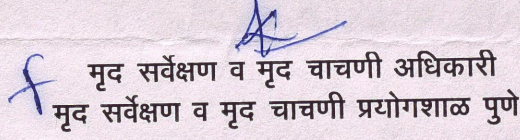 मृद सर्वेक्षण व मृद चाचणी अधिकारी
मृद सर्वेक्षण व मृद चाचणी प्रयोगशाळ पुणे